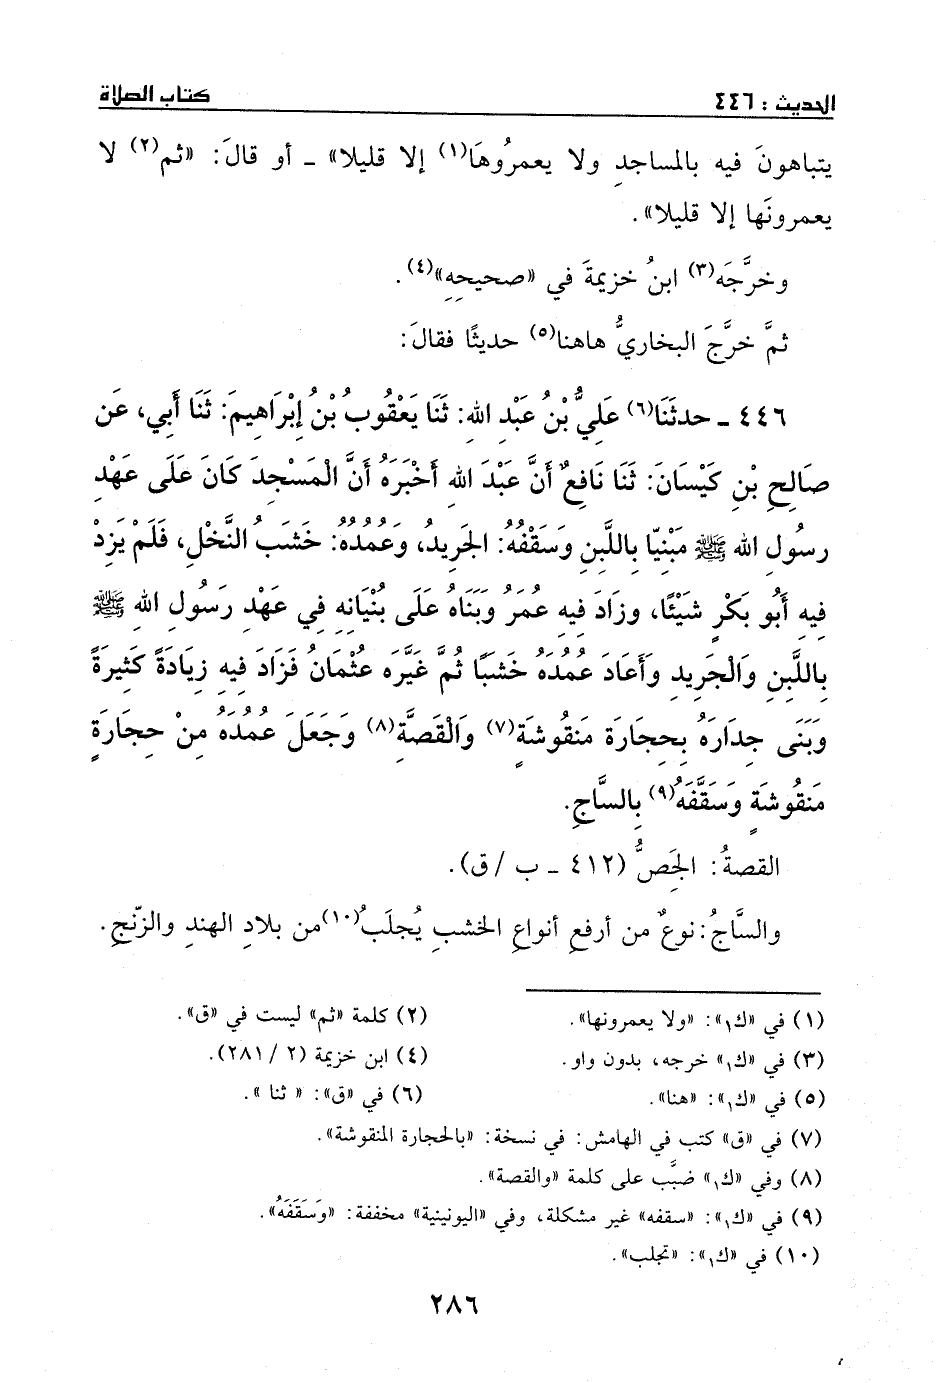 الحديث : ٤٤٦ كتاب الصلاة
يتباهونَ فيه بالمساجدِ ولا يعمرُوهَا(١) إلا قليلا» ـ أو قالَ: «ثم(٢) لا
يعمرونَها إلا قليلا».
وخرَّجَه(٣) ابنُ خزيمةَ في «صحيحِهِ»(٤).
ثمَّ خرَّجَ البخاريُّ هاهنا(٥) حديثًا فقالَ:
٤٤٦ ـ حدثَنَا(٦) عَلَيُّ بْنُ عَبْدِ اللهِ: ثَنَا يَعْقُوبُ بْنُ إِبْرَاهِيمَ: ثَنَا أَبي، عَن
صَالِحِ بْنِ كَيْسَانَ: ثَنَا نَافِعٌ أَنَّ عَبْدَ اللهِ أَخْبَرَهُ أَنَّ الْمَسْجِدَ كَانَ عَلَى عَهْدِ
رسُولِ اللهِ ﷺ مَبْنِيّا بِاللَّبِنِ وَسَقْفُهُ: الجَرِيدُ، وَعُمُدُهُ: خَشَبُ النَّخْلِ، فَلَمْ يَزِدْ
فِيهِ أَبُو بَكْرٍ شَيْئًا، وزَادَ فِيهِ عُمَرُ وَبَنَاهُ عَلَى بُنْيَانِهِ فِي عَهْدِ رَسُولِ اللهِ ﷺ
بِاللَّبِنِ وَالْجَرِيدِ وأَعَادَ عُمُدَهُ خَشَبًا ثُمَّ غَيَّرَه عُثْمَانُ فَزَادَ فِيهِ زِيَادَةً كَثِيرَةً
وَبَنَى جِدَارَهُ بِحِجَارَةٍ مَنقُوشَةٍ(٧) وَالْقَصَّةِ(٨) وَجَعَلَ عُمُدَهُ مِنْ حِجَارَةٍ
مَنقُوشَةٍ وَسَقَّفَهُ(٩) بِالسَّاجِ.
القصةُ: الجَصُّ (٤١٢ ـ ب / ق).
والسَّاجُ: نوعٌ من أرفعِ أنواعِ الخشبِ يُجلَبُ(١٠) من بلادِ الهندِ والزّنجِ.
(١) في «ك١»: «ولا يعمرونها». (٢) كلمة «ثم» ليست في «ق».
(٣) في «ك١» خرجه، بدون واو. (٤) ابن خزيمة (٢ / ٢٨١).
(٥) في «ك١»: «هنا». (٦) في «ق»: « ثنا ».
(٧) في «ق» كتب في الهامش: في نسخة: «بالحجارة المنقوشة».
(٨) وفي «ك١» ضبَّب على كلمة «والقصة».
(٩) في «ك١»: «سقفه» غير مشكلة، وفي «اليونينية» مخففة: «وَسَقَفَهُ».
(١٠) في «ك١»: «تجلب».
٢٨٦